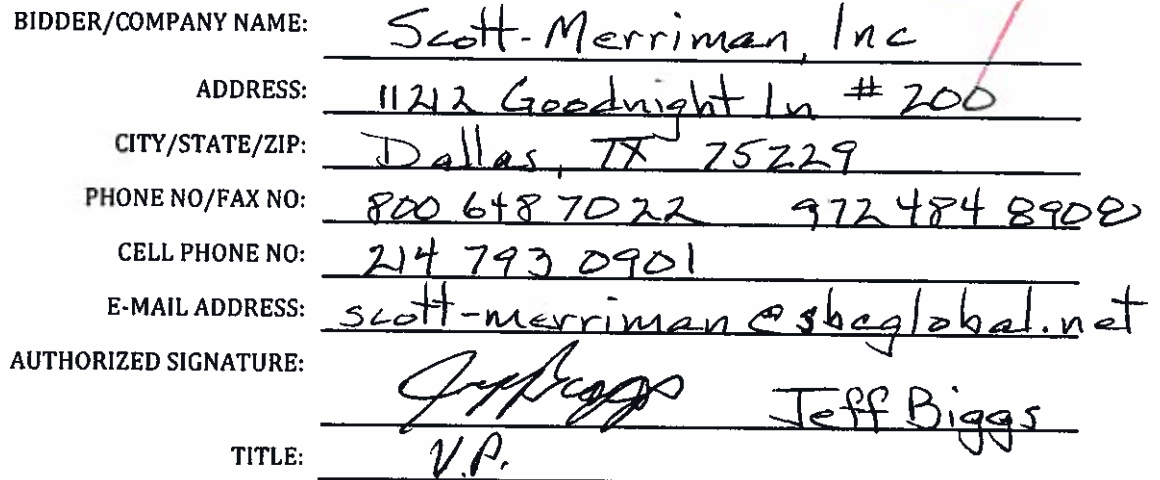 BIDDER/COMPANY NAME: Scott-Merriman, Inc
ADDRESS: 11212 Goodnight Ln # 200
CITY/STATE/ZIP: Dallas, TX 75229
PHONE NO/FAX NO: 800 648 7022 972 484 8908
CELL PHONE NO: 214 793 0901
E-MAIL ADDRESS: scott-merriman@sbcglobal.net
AUTHORIZED SIGNATURE: Jeff Biggs Jeff Biggs
TITLE: V.P.